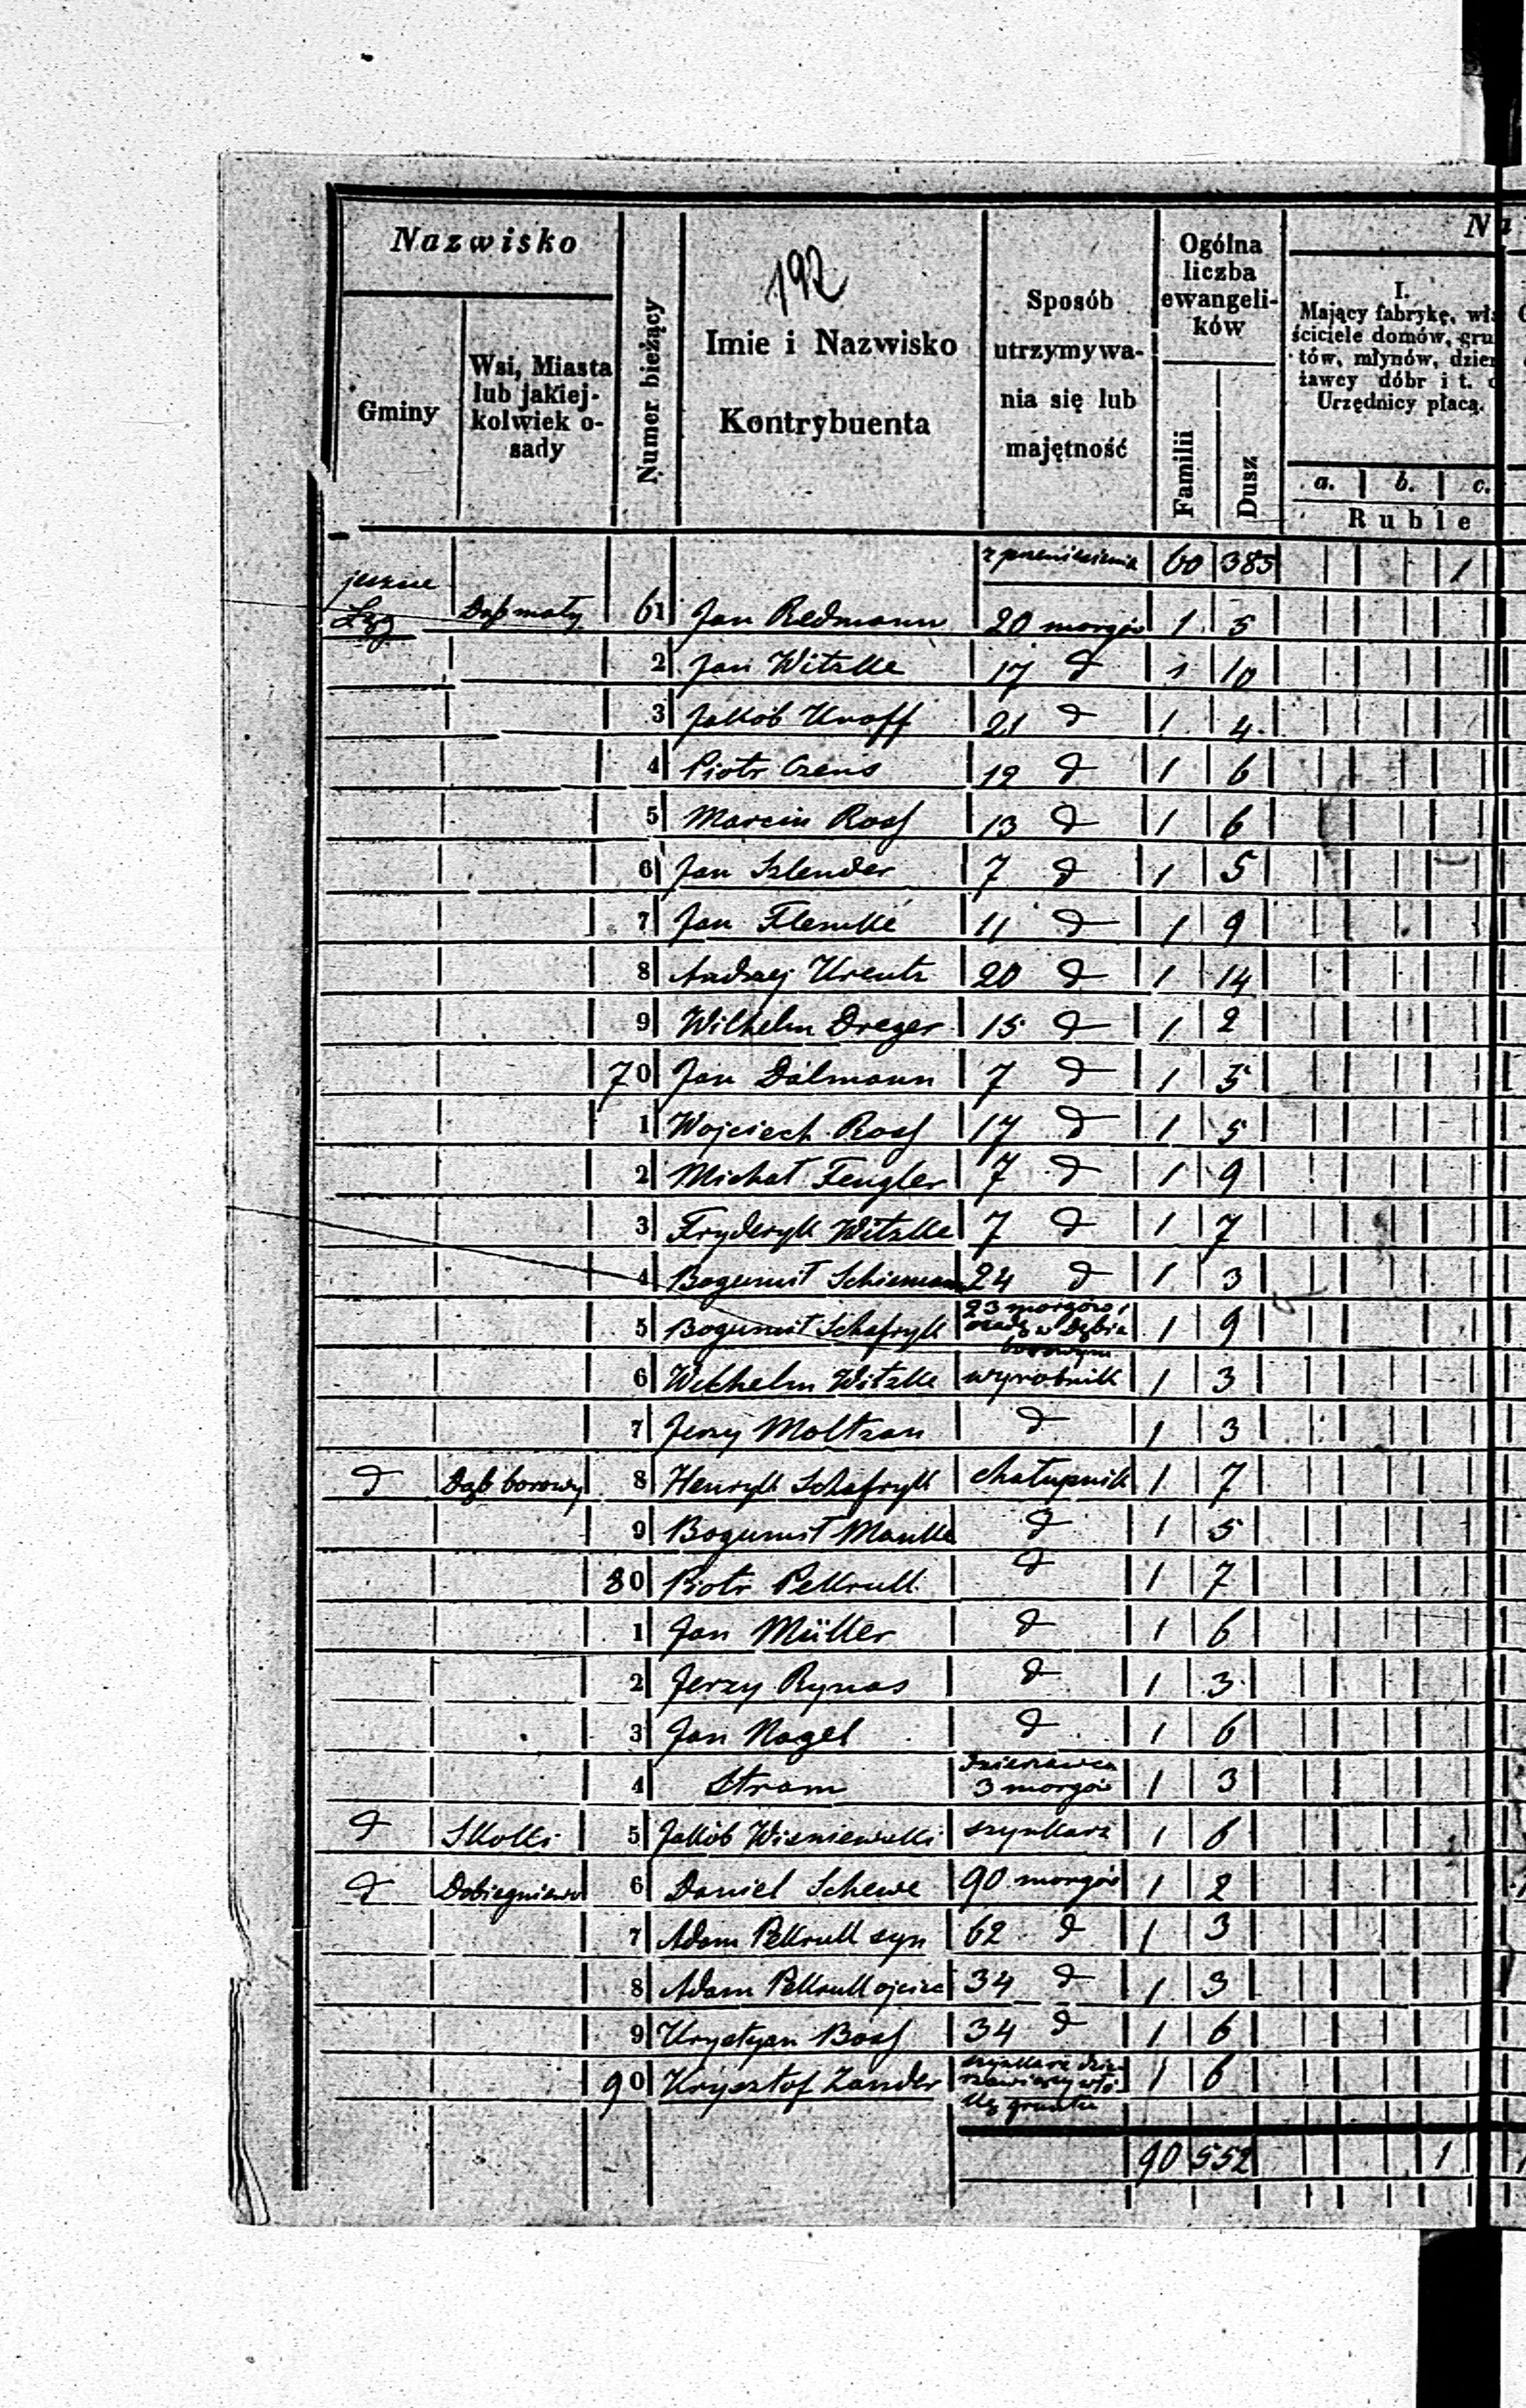 Nazwisko
Gminy
Wsi, Miasta
lub jakiej-
kolwiek o-
sady
Numer bieżący
192
Imie i Nazwisko
Kontrybuenta
Sposób
utrzymywa-
nia się lub
majętność
Ogólna
liczba
ewangeli-
ków
Familii
Dusz
Na
I.
Mający fabrykę, wła
ściciele domów, grun
tów, młynów, dzier
żawcy dóbr i t. d
Urzędnicy płacą.
a. b. c.
Ruble
z przeniesienia 60 385 1
jeszcze
Łęg Dąb mały 61 Jan Redmann 20 morgów 1 5
2 Jan Witzke 17 d 1 10
3 Jakób Knoff 21 d 1 4
4 Piotr Czens 12 d 1 6
5 Marcin Roas 13 d 1 6
6 Jan Szlender 7 d 1 5
7 Jan Flemke 11 d 1 9
8 Andrzej Krentz 20 d 1 14
9 Wilhelm Dreger 15 d 1 2
70 Jan Dalmann 7 d 1 5
1 Wojciech Roas 17 d 1 5
2 Michał Fengler 7 d 1 9
3 Fryderyk Witzke 7 d 1 7
4 Bogumił Schiemann 24 d 1 3
5 Bogumił Schafryk 23 morgów i osadę w Dębiu borowym 1 9
6 Wilhelm Witzke wyrobnik 1 3
7 Jerzy Moltzan d 1 3
d Dąb borowy 8 Henryk Schafryk chałupnik 1 7
9 Bogumił Manke d 1 5
80 Piotr Pekrull d 1 7
1 Jan Müller d 1 6
2 Jerzy Rynas d 1 3
3 Jan Nagel d 1 6
4 Stram dzierżawca 3 morgów 1 3
d Skoki 5 Jakób Wiśniewski szynkarz 1 6
d Dobiegniewo 6 Daniel Schewe 90 morgów 1 2
7 Adam Pekrull syn 62 d 1 3
8 Adam Pekrull ojciec 34 d 1 3
9 Krystyan Boas 34 d 1 6
90 Krysztof Zander szynkarz gruntu 1 6
90 552 1